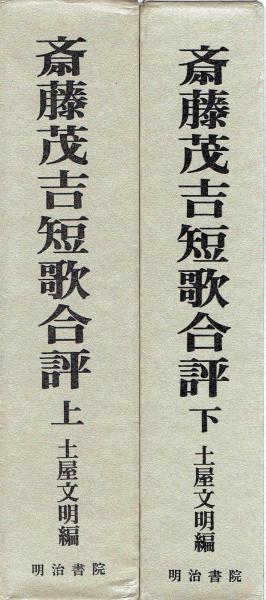 斎藤茂吉短歌合評 上 土屋文明編
明治書院
斎藤茂吉短歌合評 下 土屋文明編
明治書院